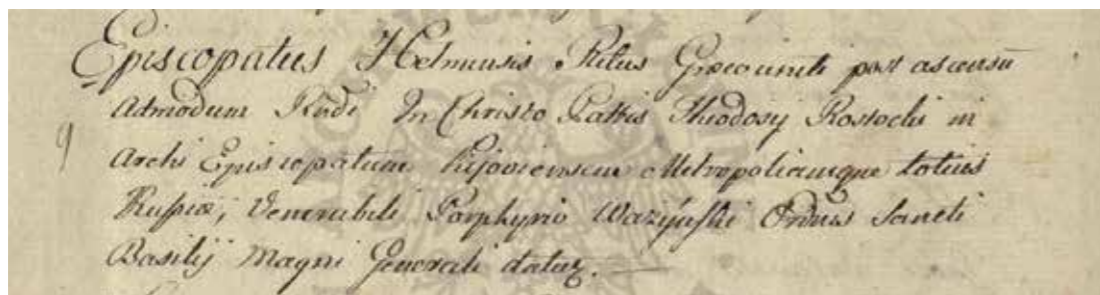 Episcopatus Helmensis Ritus Græco uniti post ascensū
Admodum Rndi In Christo Pattis Theodosy Rostocki in
9 Archi Episcopatum Kijoviensem Metropoliamque totius
Rusſiæ, Venerabili Porphyrio Ważyńſki Ordinis Sancti
Basilij Magni Generali datur.